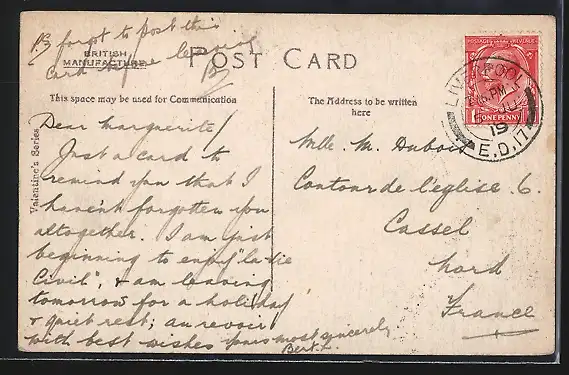 P.S forgot to post this
card before leaving
B
BRITISH
MANUFACTURE
POST CARD
This space may be used for Communication
The Address to be written
here
Valentine's Series
Dear Marguerite/
Just a card to
remind you that I
haven't forgotten you
altogether. I am just
beginning to enjoy "la vie
Civil", & am leaving
tomorrow for a holiday
& quiet rest; au revoir
with best wishes yours most sincerely
Bert.
Mlle. M. Dubois
Contour de l'église 6.
Cassel
Nord
France
POSTAGE REVENUE
1 ONE PENNY
LIVERPOOL
PM
JU
19
E.D.17